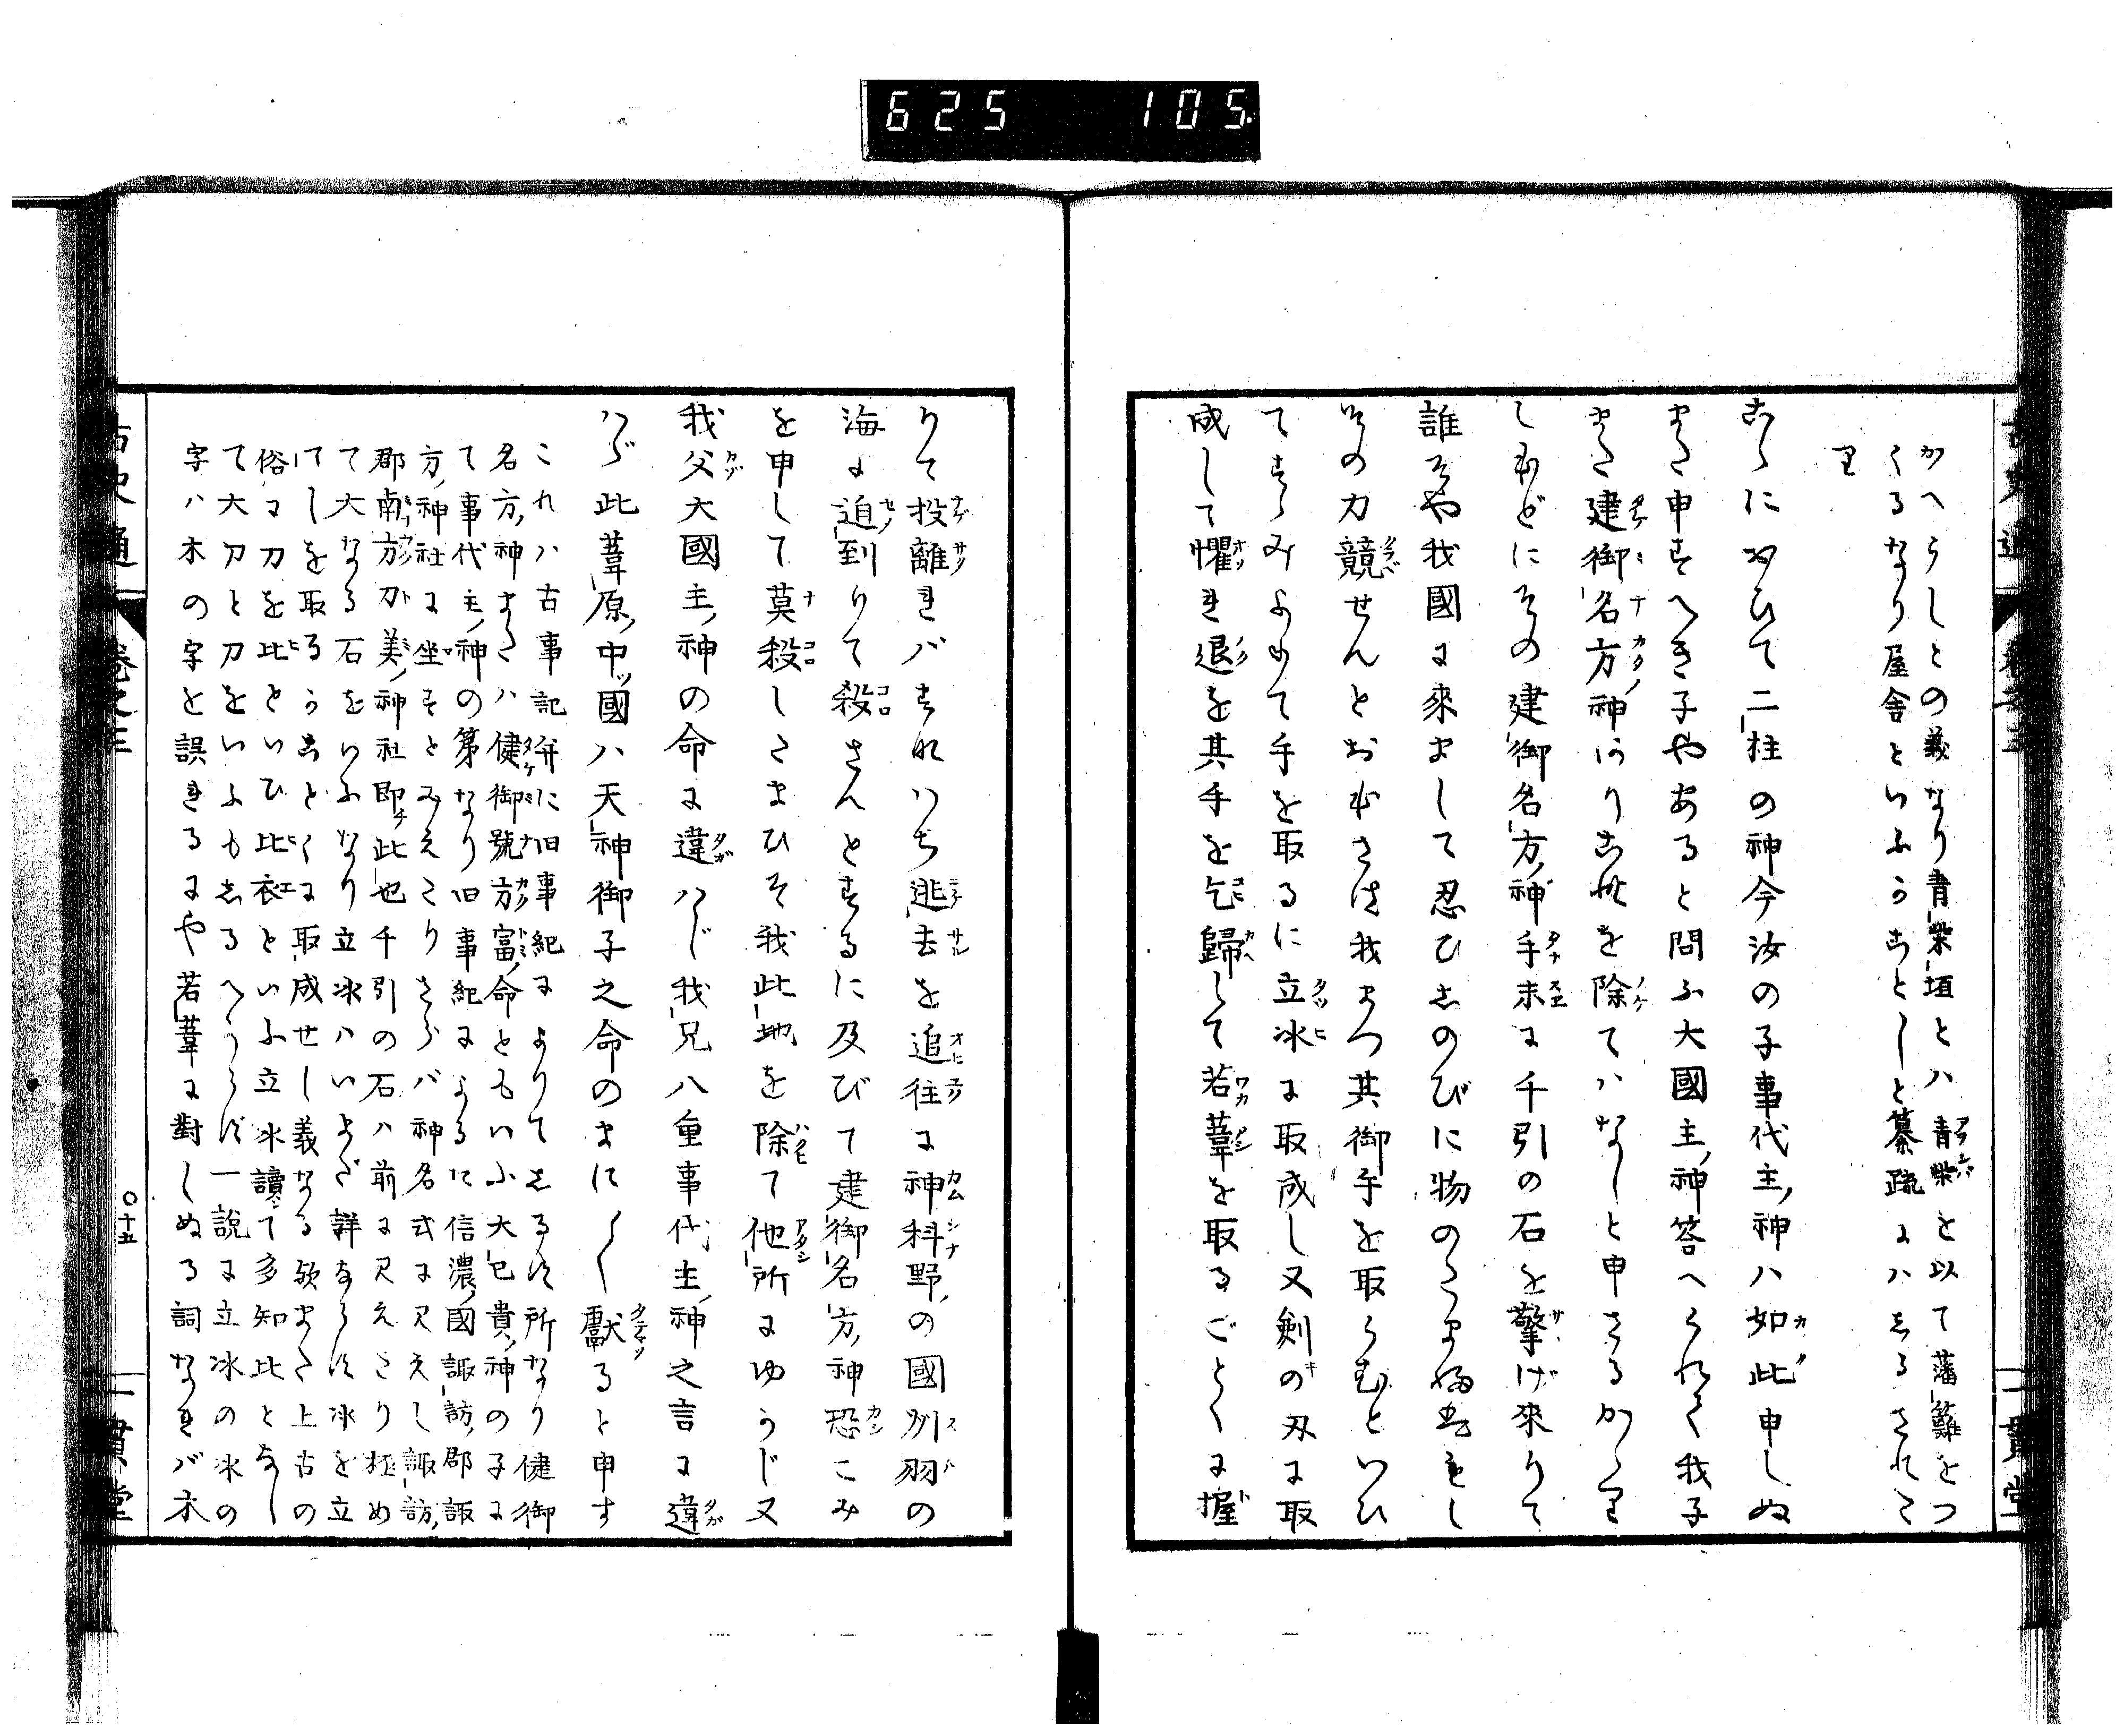 625 105.
かへらしとの義なり青柴垣とハ青柴を以て藩籬をつ
くるなり屋舎といふかことしと纂疏にハしるされた
り
こゝにおひて二柱の神今汝の子事代主神ハ如此申しぬ
また申すへき子やあると問ふ大國主神答へられて我子
また建御名方神ありこれを除てハなしと申さるかゝり
しほどにその建御名方神手末に千引の石を擎げ來りて
誰そや我國に來まして忍ひしのびに物のたまふ
その力競せんとおもさは我まつ其御手を取らむといひ
てすゝみよりて手を取るに立氷に取成し又剣の刃に取
成して懼き退を其手を乞歸して若葦を取るごとくに握
りて投離きバすなハち逃去を追往に神科野の國州羽の
海に迫到りて殺さんとするに及びて建御名方神恐こみ
を申して莫殺したまひそ我此地を除て他所にゆかじ又
我父大國主神の命に違ハじ我兄八重事代主神之言に違
ハじ此葦原中國ハ天神御子之命のまに〱獻ると申す
これハ古事記并に旧事紀によりてしるす所なり健御
名方神またハ健御號方富命ともいふ大己貴神の子に
て事代主神の第なり旧事紀によるに信濃國諏訪郡諏
方神社に坐すとみえたりさらバ神名式に見えし諏訪
郡南方刀美神社即此也千引の石ハ前に見えたり極め
て大なる石をいふなり立氷ハいまだ詳ならす氷を立
てしを取るかことくに取成せし義なる歟また上古の
俗に刀を比といひ比衣といふ立氷讀て多知比となし
て大刀と刀をいふもしるへからす一説に立氷の氷の
字ハ木の字を誤きるにや若葦に對しぬる詞なきバ木
古史通 巻之三 〇十五 一貫堂